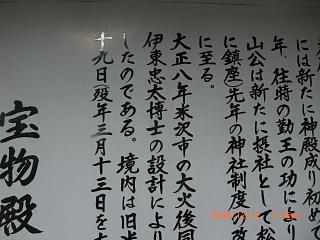 には新たに神殿成り初めて
年、往時の勤王の功により
山公は新たに摂社として松
に鎮座)先年の神社制度の改
に至る。
大正八年米沢市の大火後同
伊東忠太博士の設計により
したのである。境内は旧米
十九日(歿年三月十三日を太
宝物殿